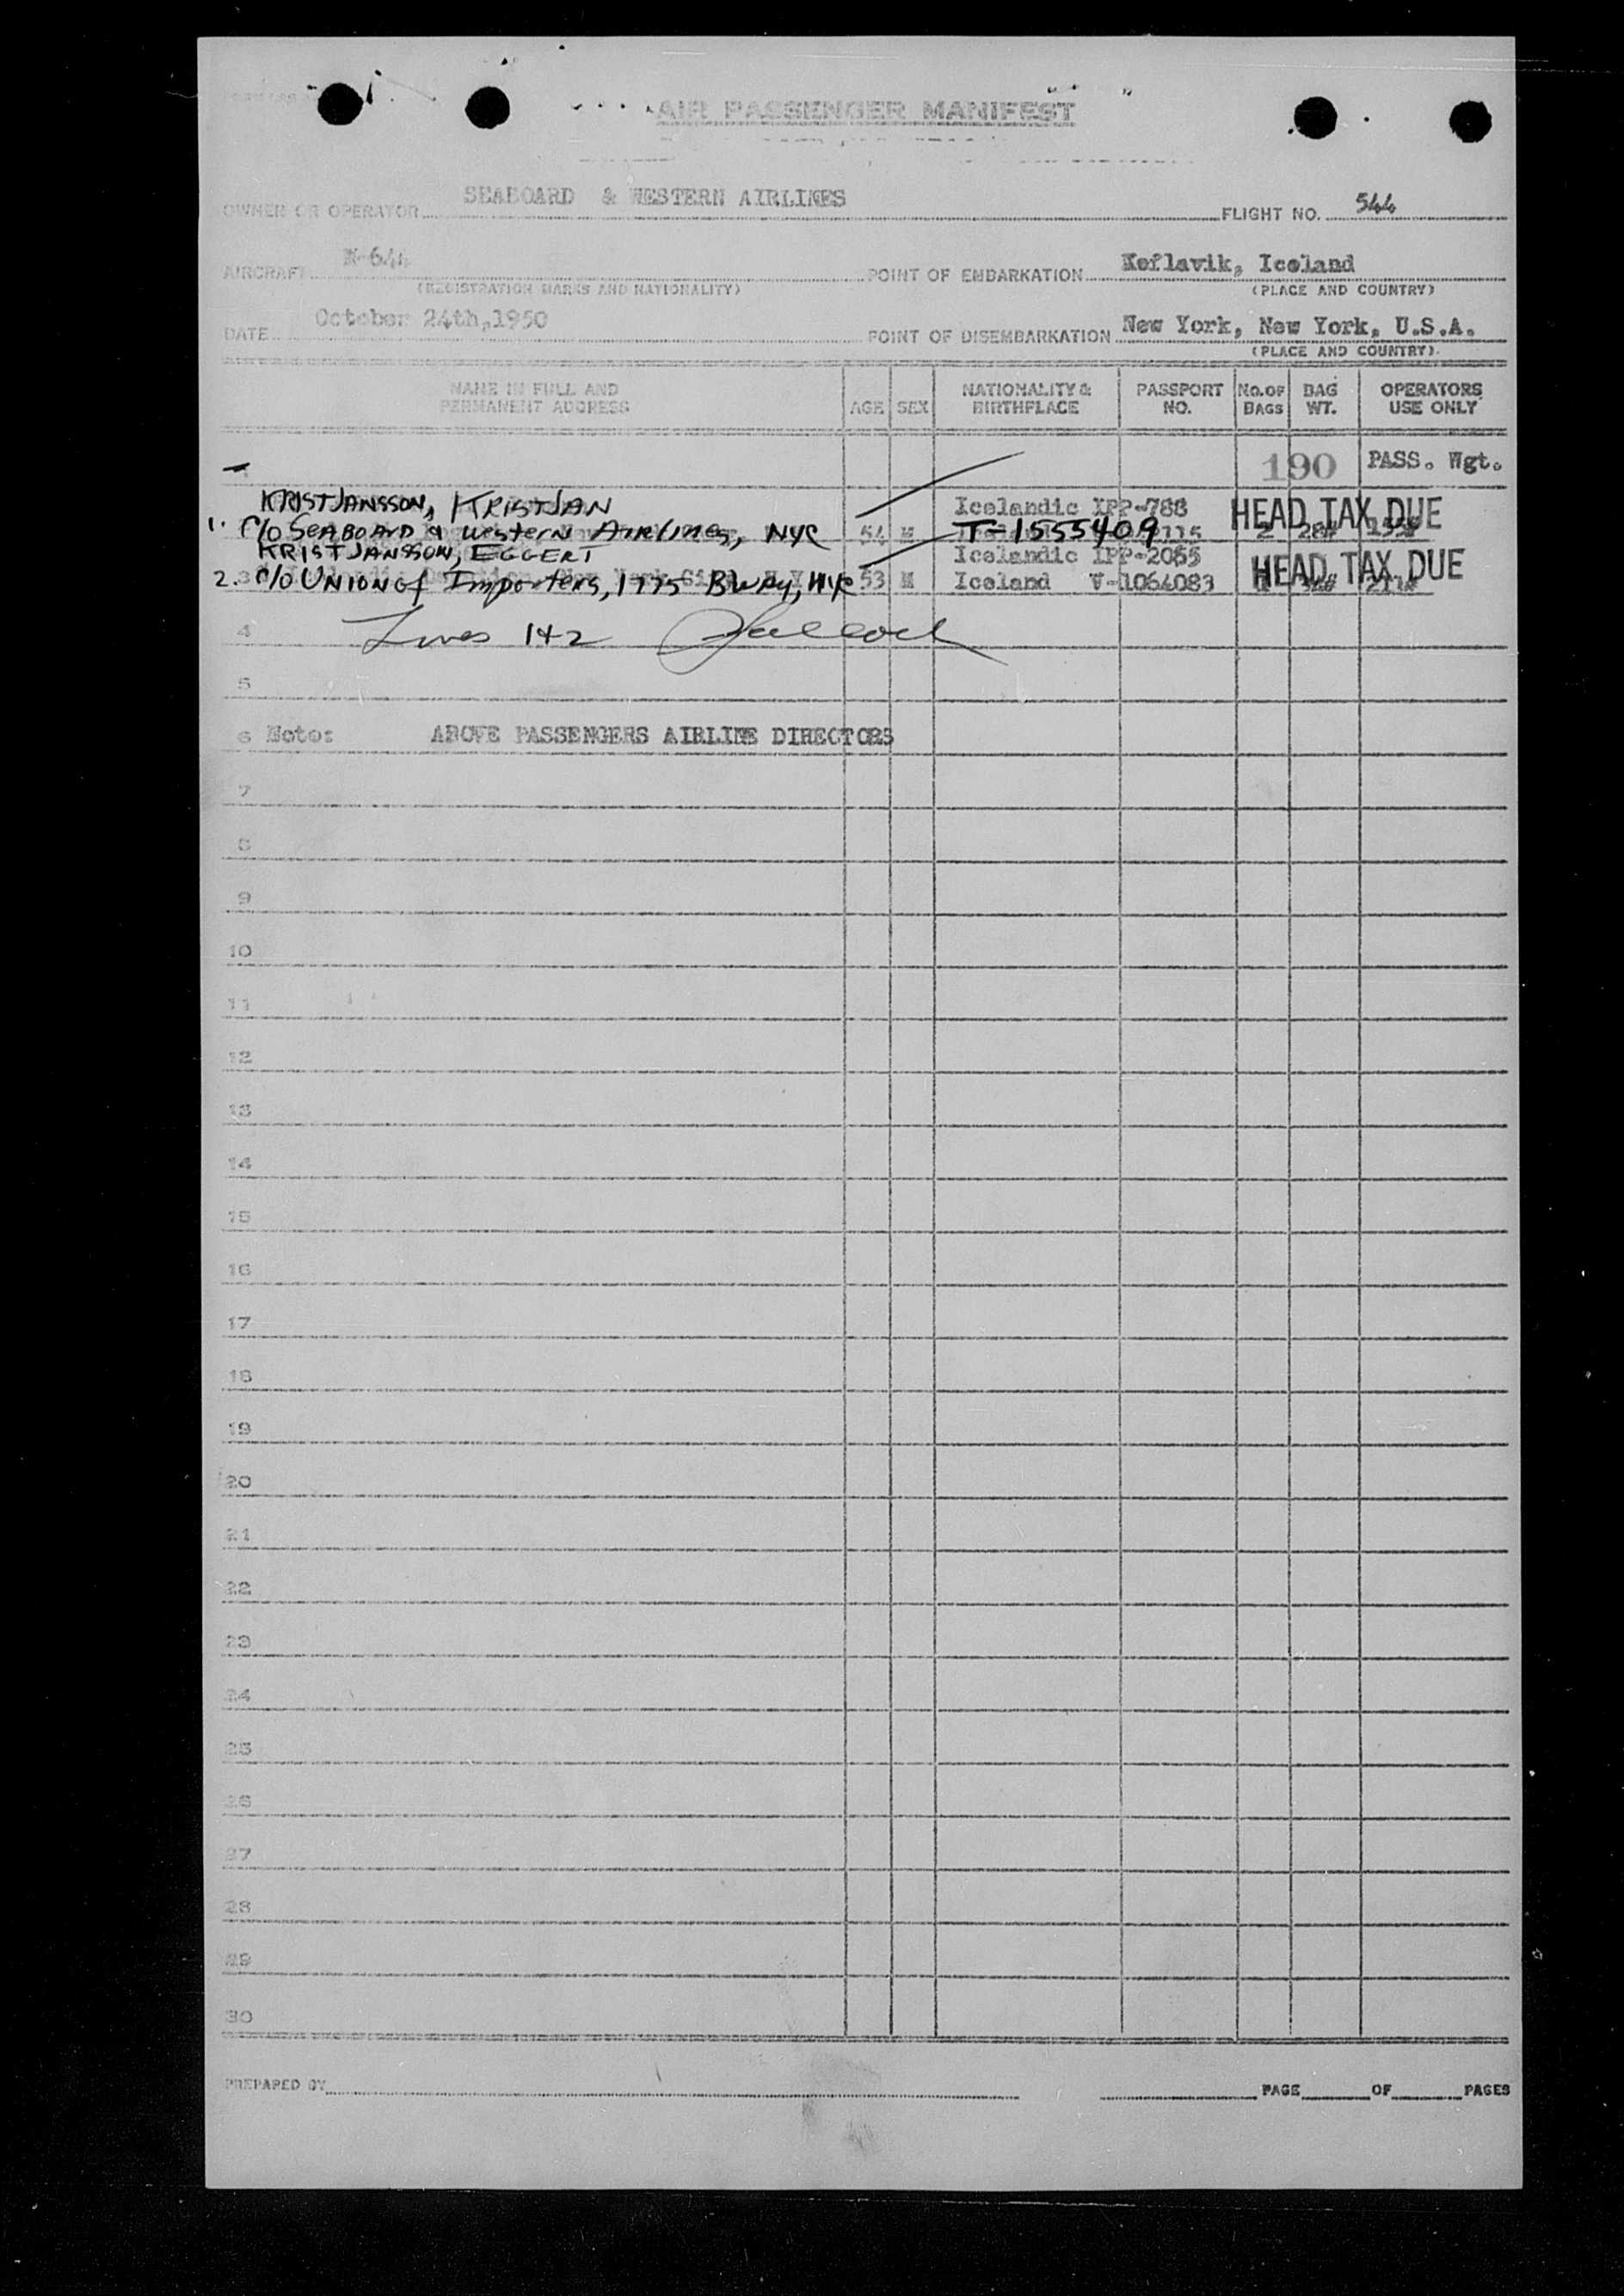 AIR PASSENGER MANIFEST
OWNER OR OPERATOR SEABOARD & WESTERN AIRLINES FLIGHT NO. 544
AIRCRAFT N-644 POINT OF EMBARKATION Keflavik, Iceland
(REGISTRATION MARKS AND NATIONALITY) (PLACE AND COUNTRY)
DATE October 24th,1950 POINT OF DISEMBARKATION New York, New York, U.S.A.
(PLACE AND COUNTRY)
NAME IN FULL AND PERMANENT ADDRESS AGE SEX NATIONALITY & BIRTHPLACE PASSPORT NO. No. OF BAGS BAG WT. OPERATORS USE ONLY
190 PASS. Wgt.
KRISTJANSSON, KRISTJAN Icelandic IPP-788 HEAD TAX DUE
1. C/O SEABOARD & Western AIRlines, NYC 54 M T-1555409 2 28#
KRISTJANSSON, EGGERT Icelandic IPP-2055 HEAD TAX DUE
2. C/O UNION of Importers, 1775 BWAY, NYC 53 M Iceland V-1064083
4 Lines 1+2
5
6 Note: ABOVE PASSENGERS AIRLINE DIRECTORS
7
8
9
10
11
12
13
14
15
16
17
18
19
20
21
22
23
24
25
26
27
28
29
30
PREPARED BY PAGE OF PAGES